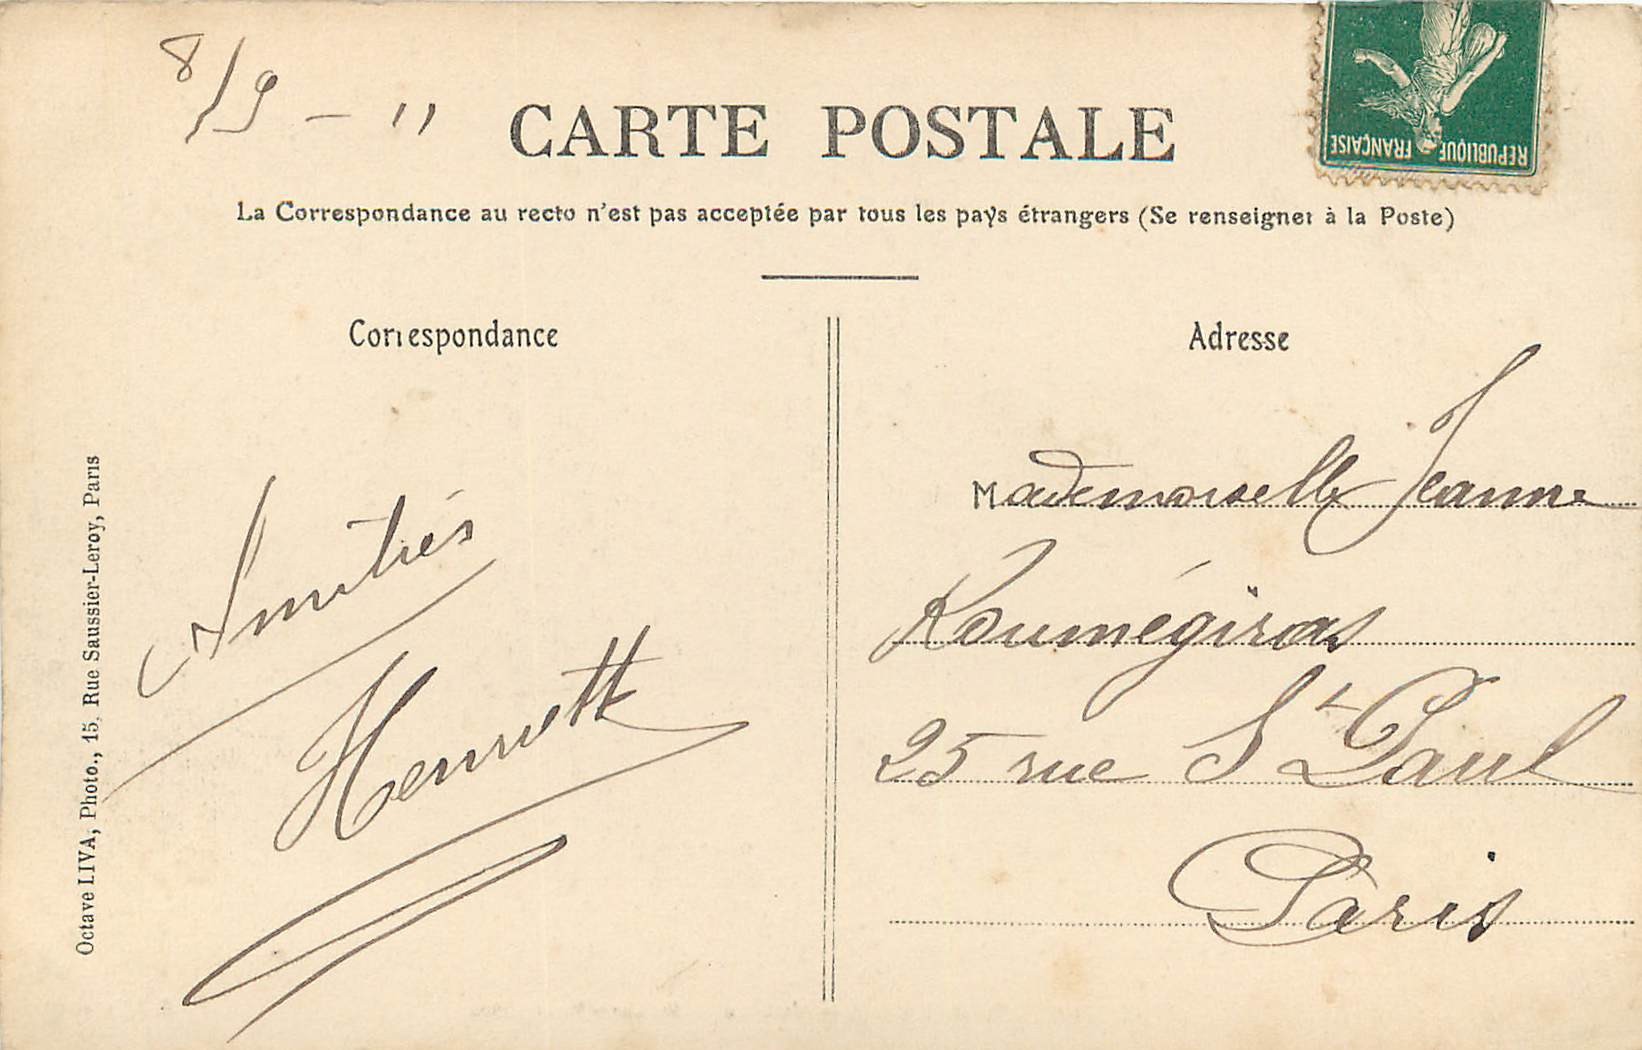 8/9 - 11
CARTE POSTALE
REPUBLIQUE FRANÇAISE
La Correspondance au recto n'est pas acceptée par tous les pays étrangers (Se renseigner à la Poste)
Correspondance
Adresse
Amitiés
Henriette
Mademoiselle Jeanne
Roumégiras
25 rue St Paul
Paris
Octave LIVA, Photo., 15, Rue Saussier-Leroy, Paris